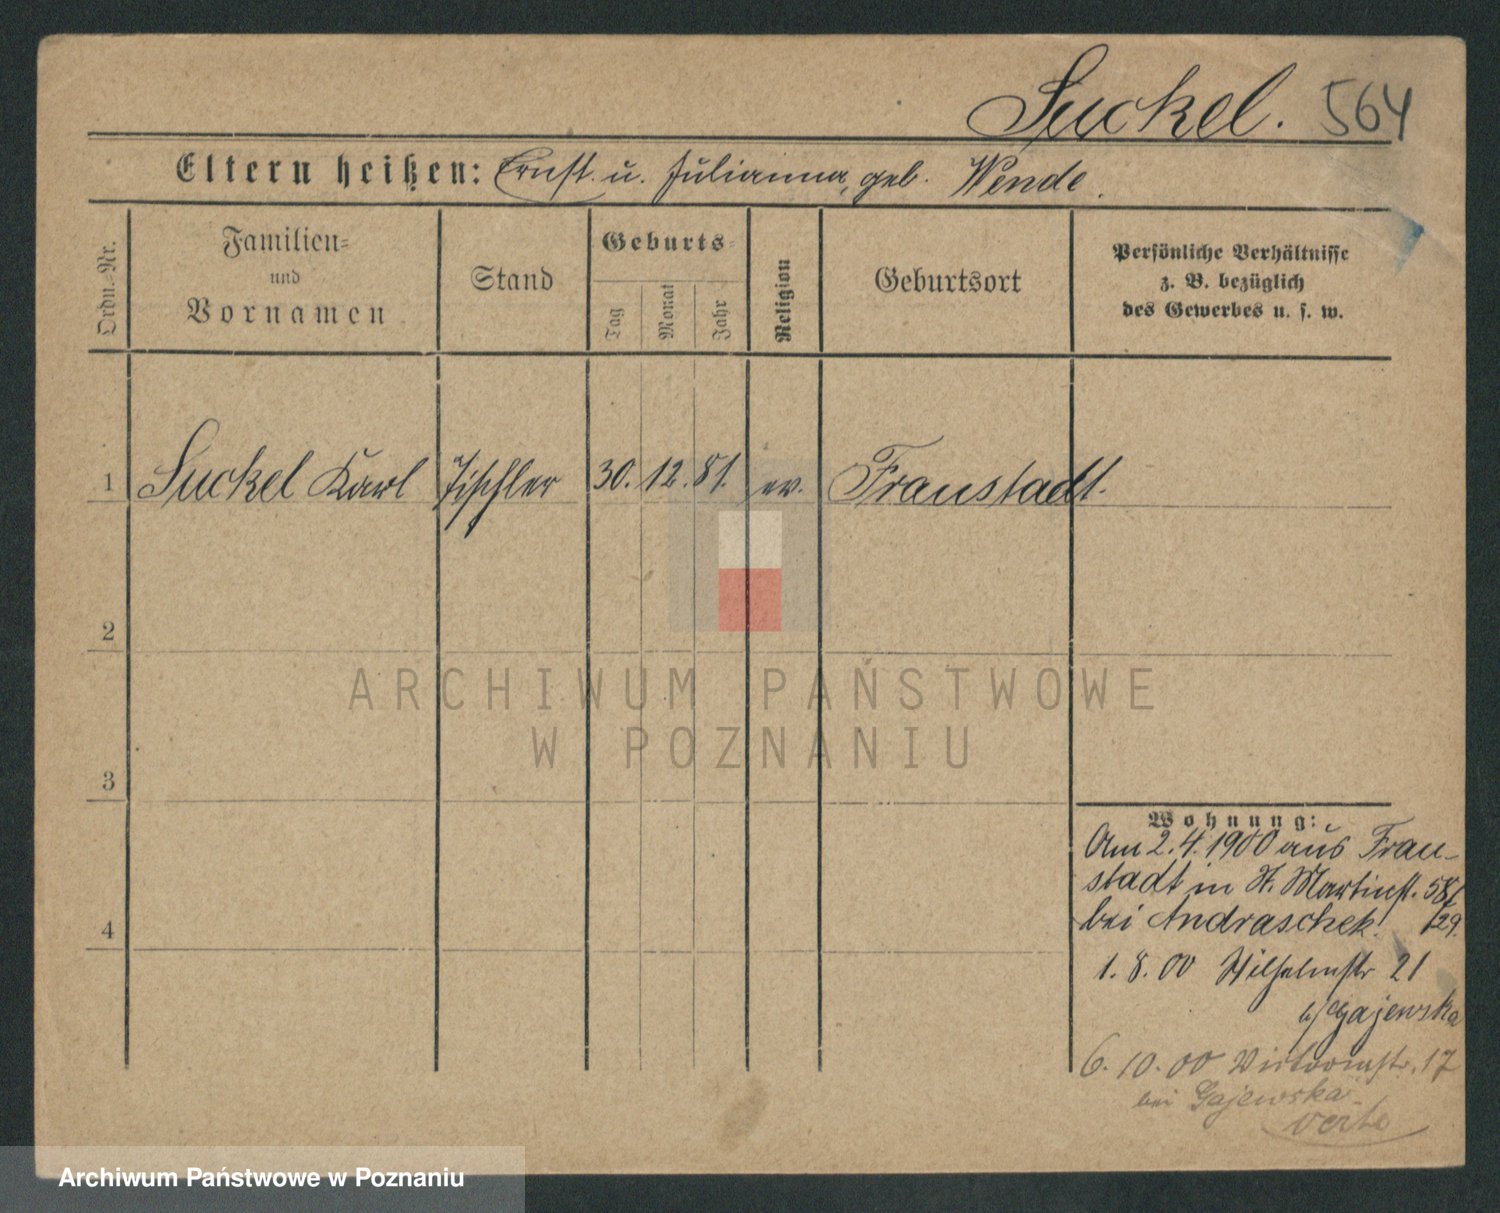 Suckel. 564
Eltern heißen: Ernst u. Julianna, geb. Wende.
Ordn.-Nr.
Familien-
und
Vornamen
Stand
Geburts-
Tag
Monat
Jahr
Religion
Geburtsort
Persönliche Verhältnisse
z. B. bezüglich
des Gewerbes u. s. w.
1 Suckel Karl Tischler 30. 12. 81. ev. Fraustadt.
2
3
4
ARCHIWUM PAŃSTWOWE
W POZNANIU
Wohnung:
Am 2.4.1900 aus Frau-
stadt in St. Martinst. 58/
bei Andraschek. 29.
1. 8. 00 Wilhelmstr 21
b/ Gajewska
6. 10. 00 Victoriastr. 17
bei Gajewska
verte
Archiwum Państwowe w Poznaniu